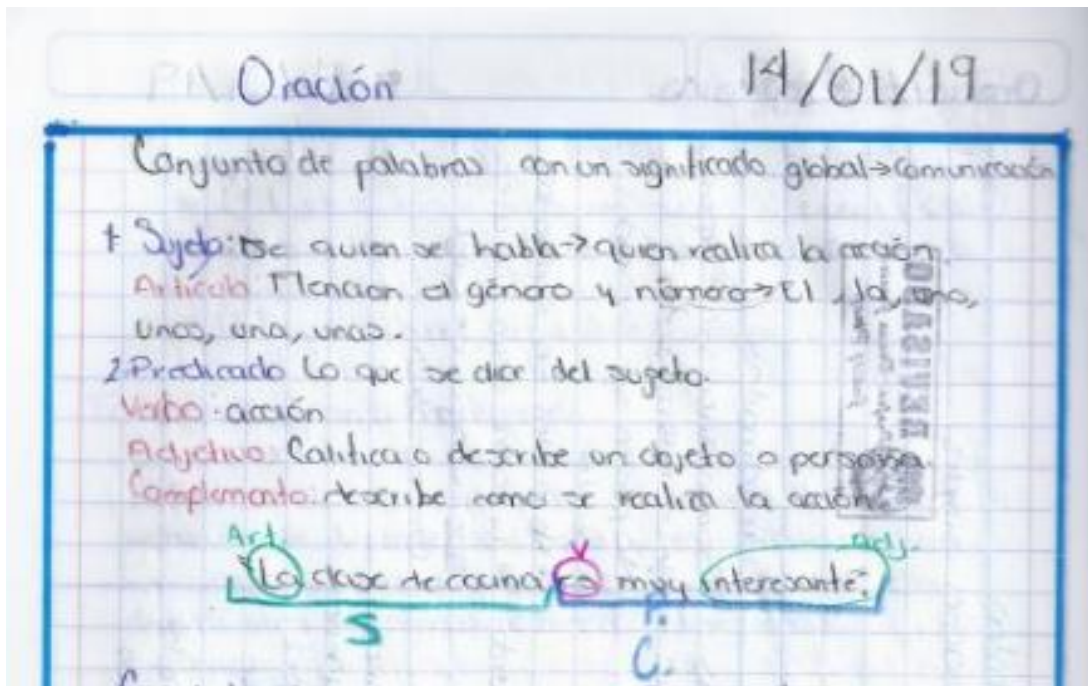 Oración 14/01/19
Conjunto de palabras con un significado global→comunicación
1 Sujeto: De quien se habla→quien realiza la acción.
Articulo Mencion el género y número→El, la, uno,
unos, una, unas.
2. Predicado Lo que se dice del sujeto.
Verbo: acción
Adjetivo Califica o describe un objeto o persona.
Complemento: describe como se realiza la acción.
Art. V Adj.
"La clase de cocina es muy interesante".
S
C.